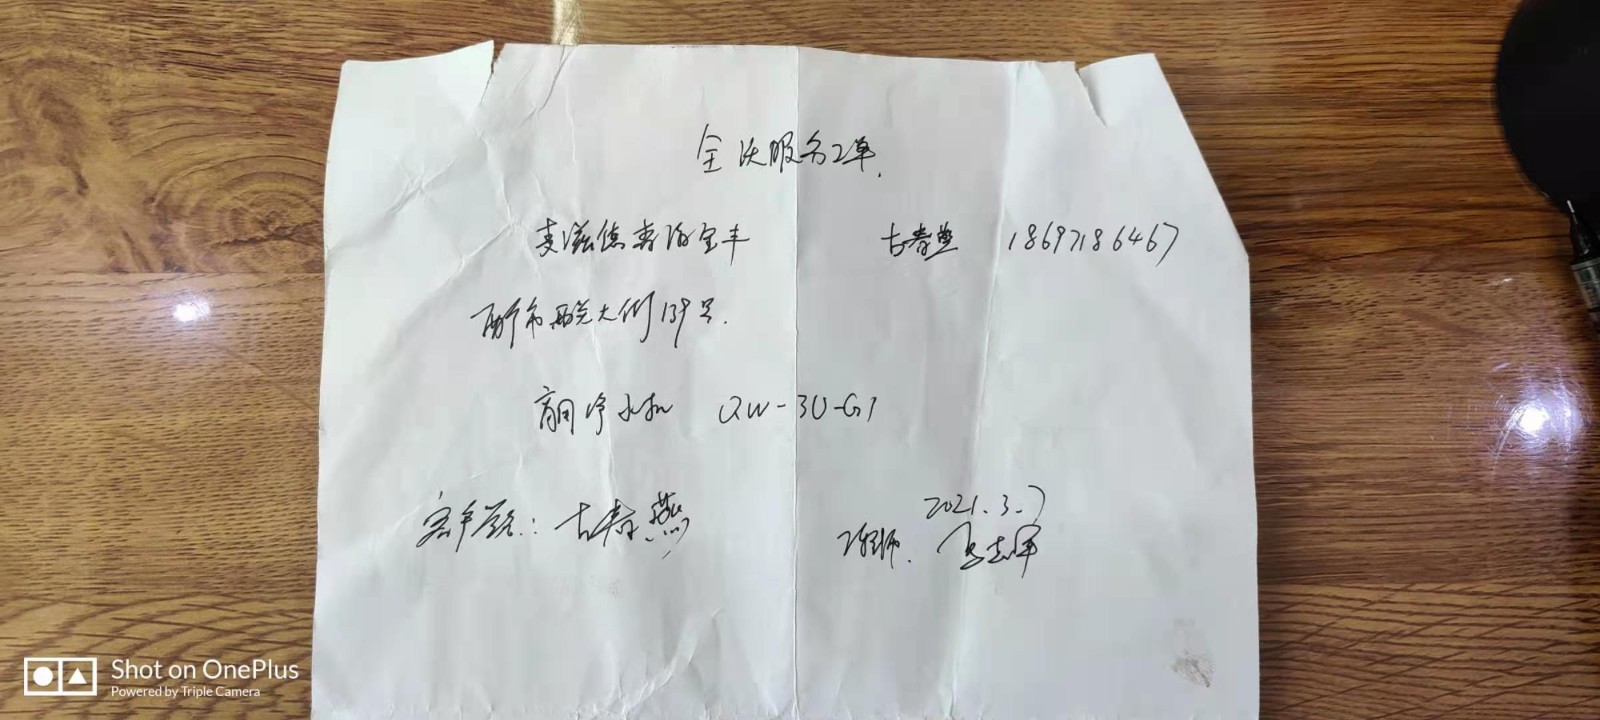 全沃服务工单.
麦滋德寿阳宝丰 古春燕 18697186467
西宁市西关大街139号.
商用净水机 QW-3U-G1
客户签名: 古春燕 2021.3.7
工程师. 志军
Shot on OnePlus
Powered by Triple Camera